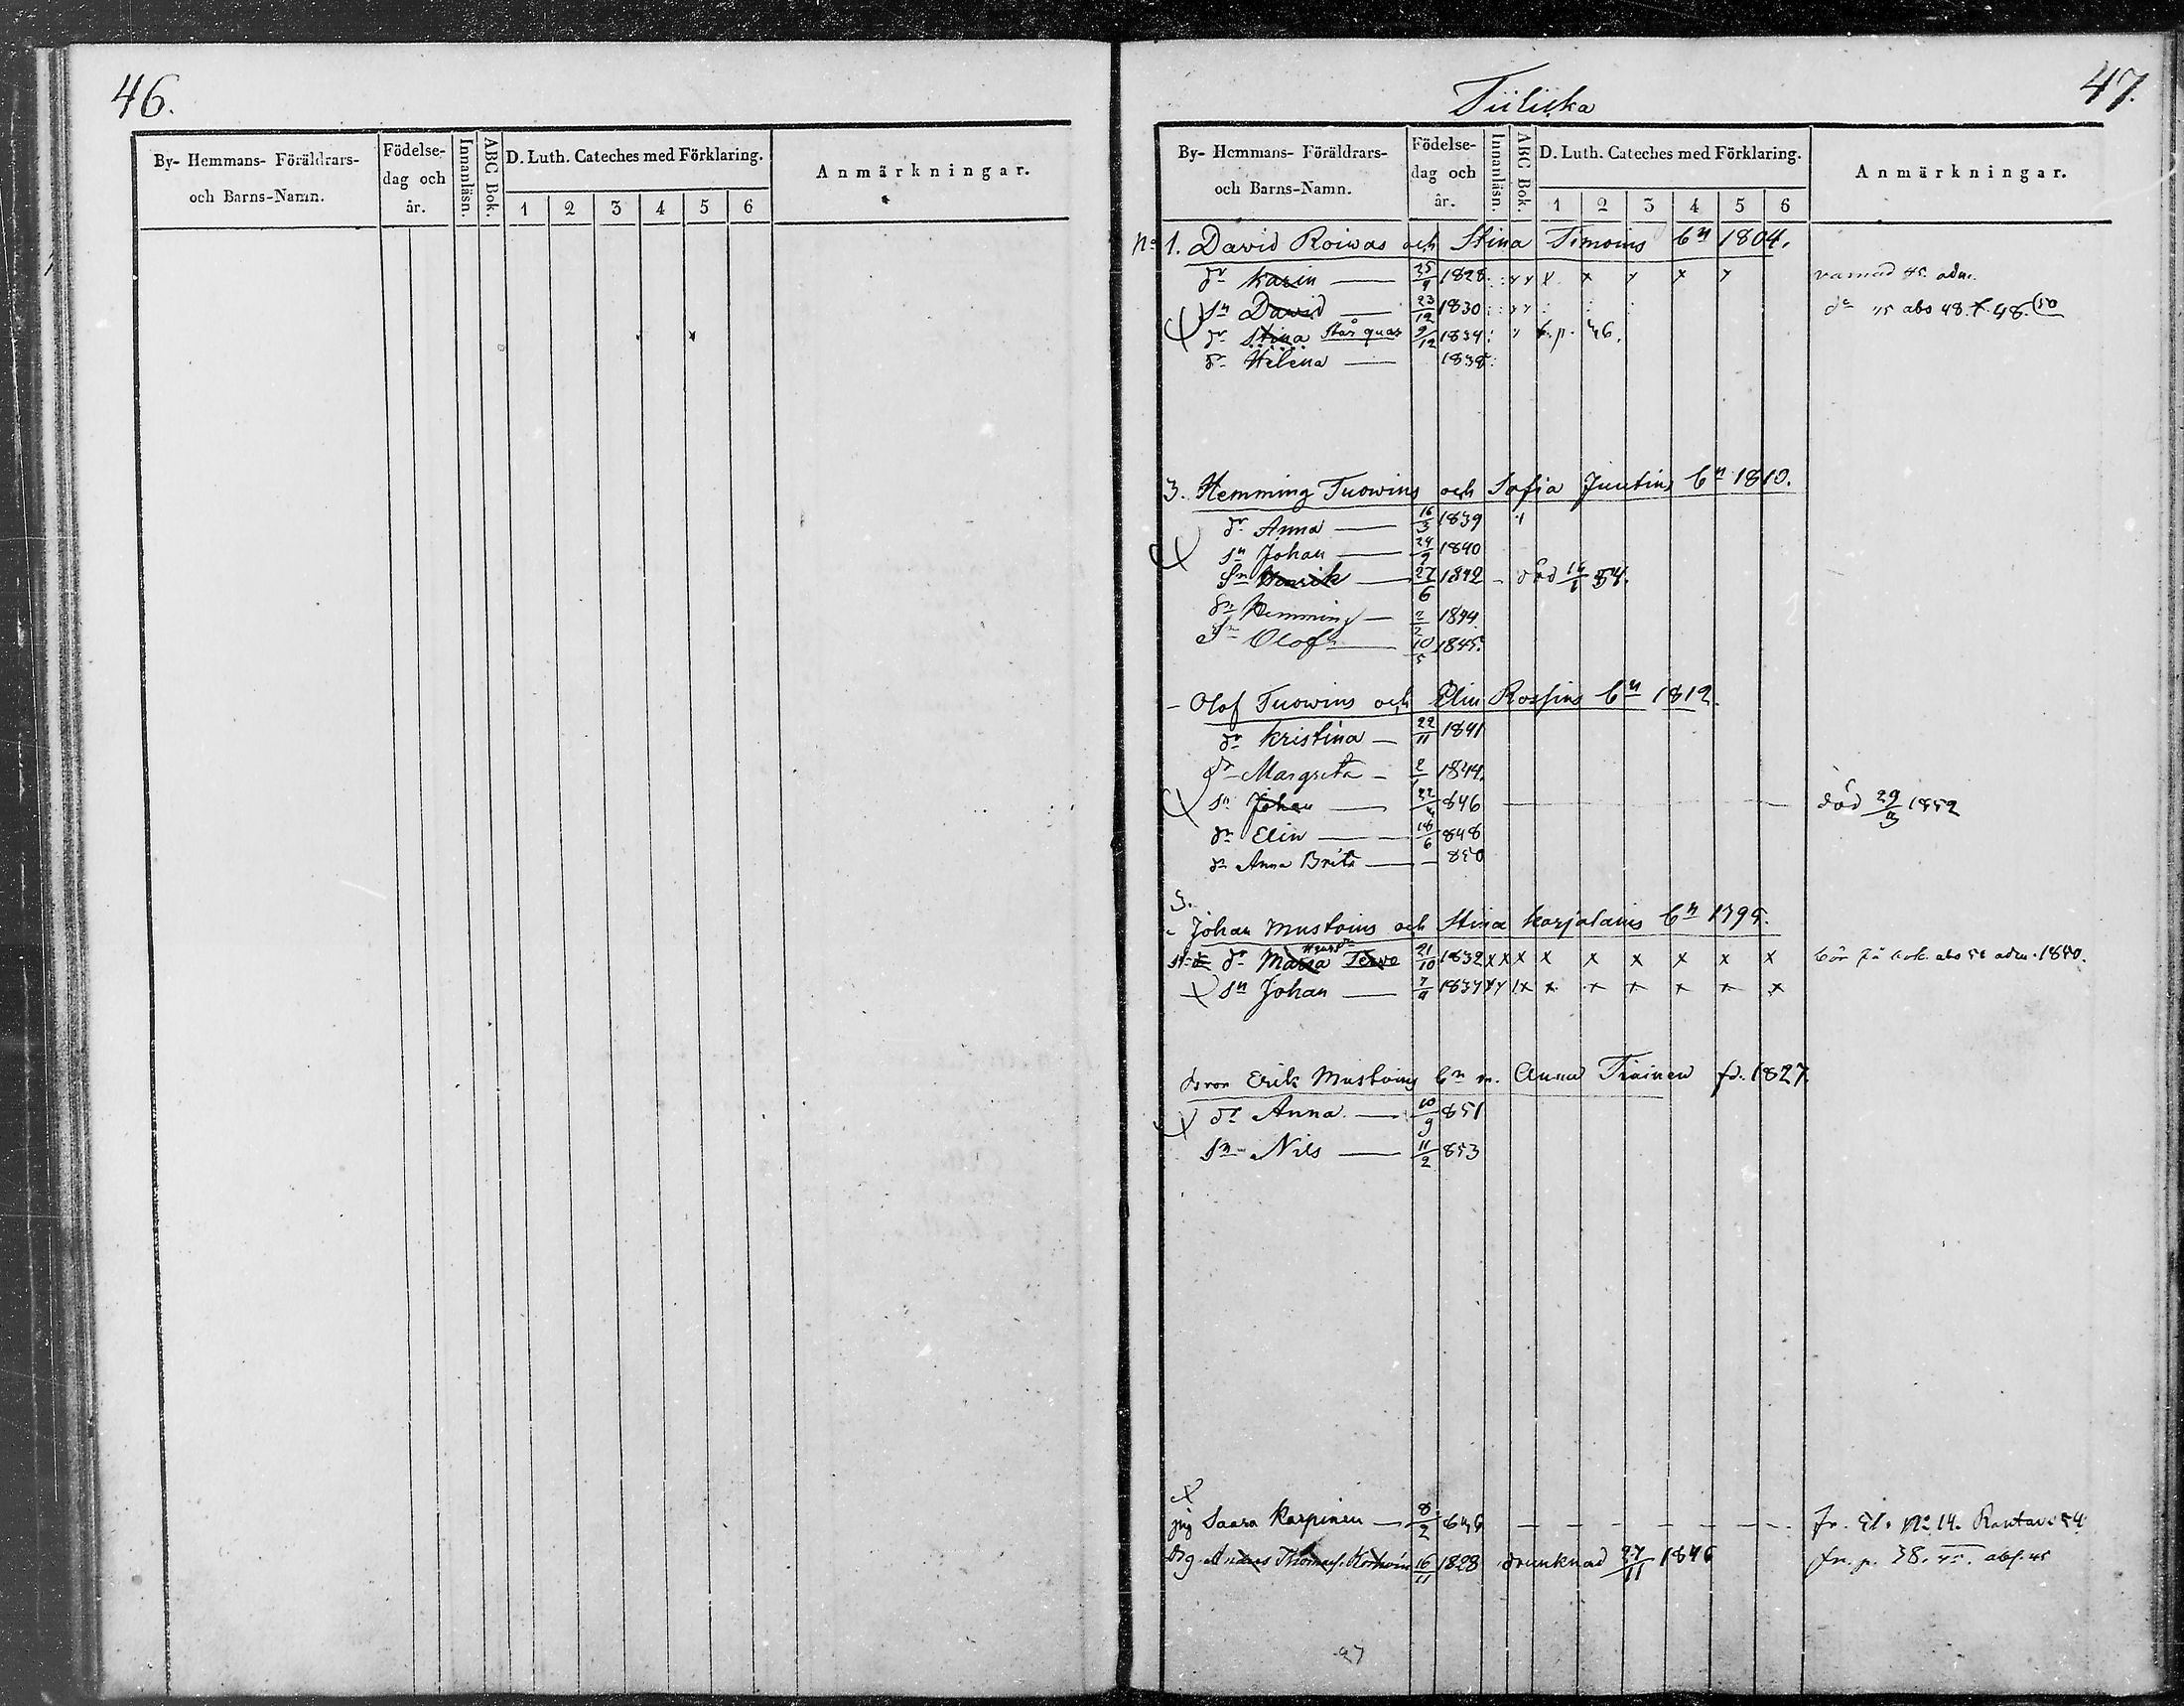 46.
By- Hemmans- Föräldrars- och Barns-Namn.
Födelse- dag och år.
Innanläsn.
ABC Bok.
D. Luth. Cateches med Förklaring.
1 2 3 4 5 6
Anmärkningar.
47.
Tiiliska
By- Hemmans- Föräldrars- och Barns-Namn.
Födelse- dag och år.
Innanläsn.
ABC Bok.
D. Luth. Cateches med Förklaring.
1 2 3 4 5 6
Anmärkningar.
No 1. David Roiwas och Stina Timoins bn 1804.
dr Karin — 25/9 1828 x x x x x
sn David — 23/12 1830 do 45 abs 48. 48. 50
dr Stina står quar 9/12 1834 p. 46.
dr Helena — 1838
3. Hemming Tuowins och Sofia Juutins bn 1810.
dr Anna — 16/3 1839
sn Johan — 24/9 1840
Sn Henrik — 27/6 1842 - död 54.
Sn Hemming — 2/2 1844.
Sn Olof — 10/5 1845.
- Olof Tuowins och Elin Rossins bn 1812.
dr Kristina — 22/11 1841
dr Margreta — 2/1 1844.
sn Johan — 22/4 846 — död 29/3 1852
dr Elin — 18/6 848
dr Anna Brita — 850
5.
- Johan Mustoins och Stina Karjalains bn 1795.
dr Maria Terwo 21/10 1832 x x x x x x x x x
sn Johan — 7/9 1837 x x x x x x x x
Erik Mustoins bn m. Anna Tiainen fd. 1827
dr Anna. — 10/9 851
Sn Nils — 11/2 853
pig Saara Karpinen — 8/2 846 — — — — — — fr. 51. No 14. Rautav. 54
drg Anders Thomas. 16/11 1828 drunknad 27/11 1846 fr. p. 38. 45. abs. 45
47